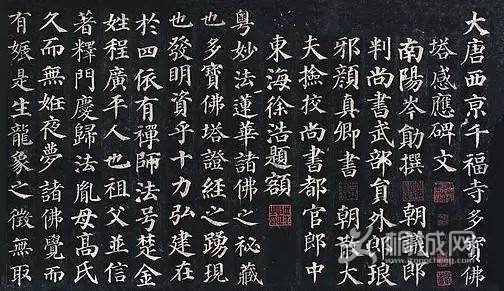 大唐西京千福寺多寶佛
塔感應碑文
南陽岑勛撰 朝議郎
判尚書武部員外郎琅
邪顏真卿書 朝散大
夫撿校尚書都官郎中
東海徐浩題額
粵妙法蓮華諸佛之秘藏
也多寶佛塔證經之踴現
也發明資乎十力弘建在
於四依有禪師法号楚金
姓程廣平人也祖父並信
著釋門慶歸法胤母高氏
久而無姙夜夢諸佛覺而
有娠是生龍象之徵無取
桐城网